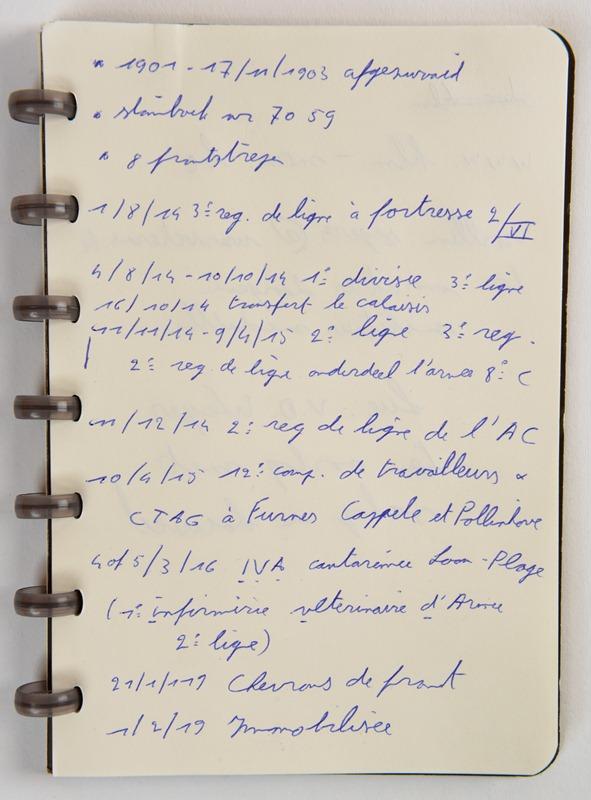 • 1901 - 17/11/1903 afgezwaaid
• stamboek nr 7059
• 8 frontstrepen
1/8/14 3e reg. de ligne à fortresse 2/VI
4/8/14 - 10/10/14 1e divisie 3e ligne
16/10/14 transfert le calaisis
11/11/14 - 9/4/15 2e ligne 3e reg.
2e reg de ligne onderdeel l'armée 8e C
11/12/14 2e reg de ligne de l'AC
10/4/15 12e comp. de travailleurs
CTAG à Furnes Cappele et Pollinkove
4 of 5/3/16 IVA Loon-Plage
(1e infirmirie véterinaire d'Armee
2e ligie)
21/1/119 Chevrons de front
1/2/19 Immobilisée